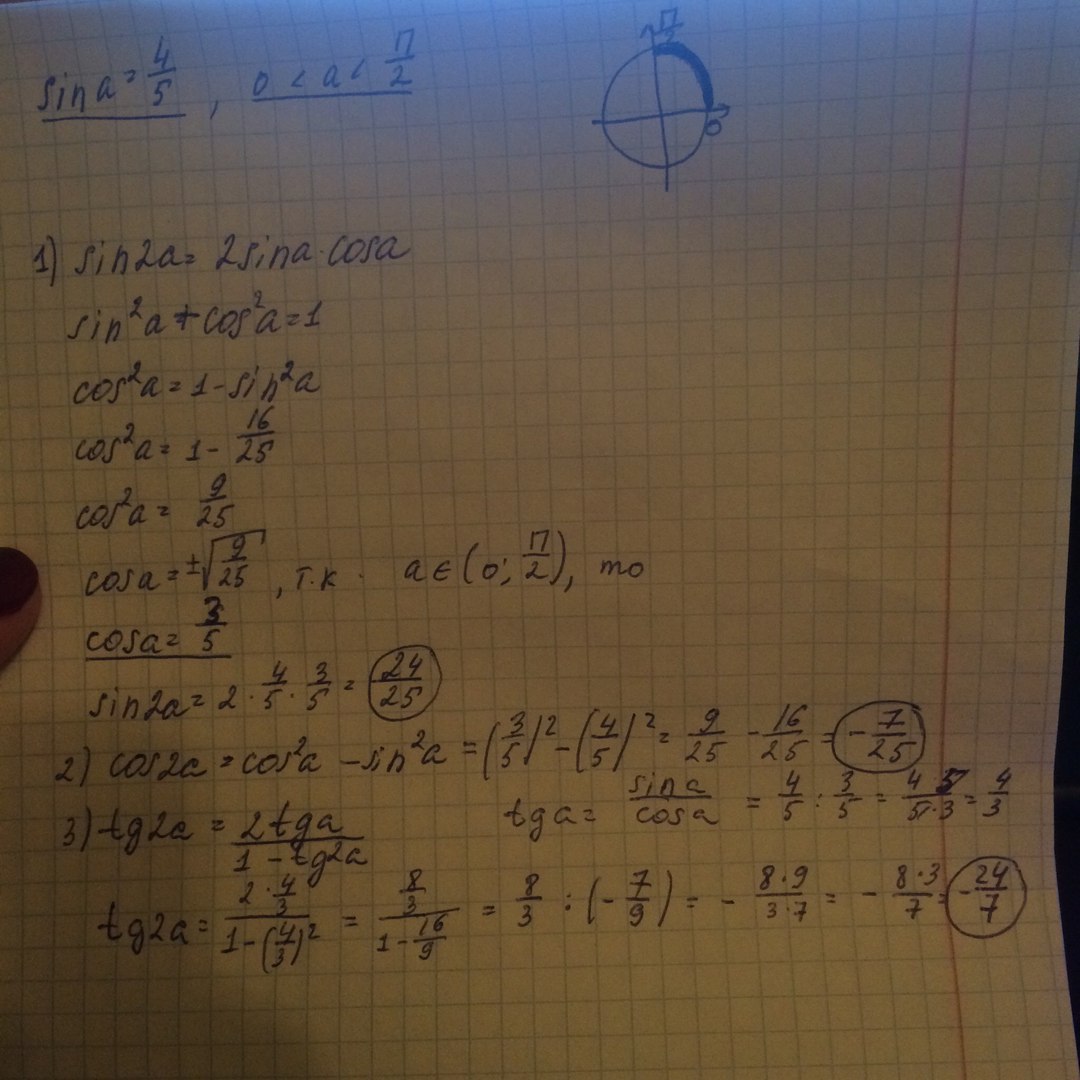 sin a = 4/5 , 0 < a < П/2
П/2
0
1) sin2a = 2sina·cosa
sin²a + cos²a = 1
cos²a = 1 - sin²a
cos²a = 1 - 16/25
cos²a = 9/25
cosa = ±√(9/25) , т.к. a ∈ (0; П/2), то
cosa = 3/5
sin2a = 2 · 4/5 · 3/5 = 24/25
2) cos2a = cos²a - sin²a = (3/5)² - (4/5)² = 9/25 - 16/25 = -7/25
3) tg2a = 2tga/(1 - tg²a) tga = sina/cosa = 4/5 : 3/5 = 4·5/5·3 = 4/3
tg2a = (2·4/3)/(1 - (4/3)²) = (8/3)/(1 - 16/9) = 8/3 : (-7/9) = - 8·9/3·7 = - 8·3/7 = -24/7